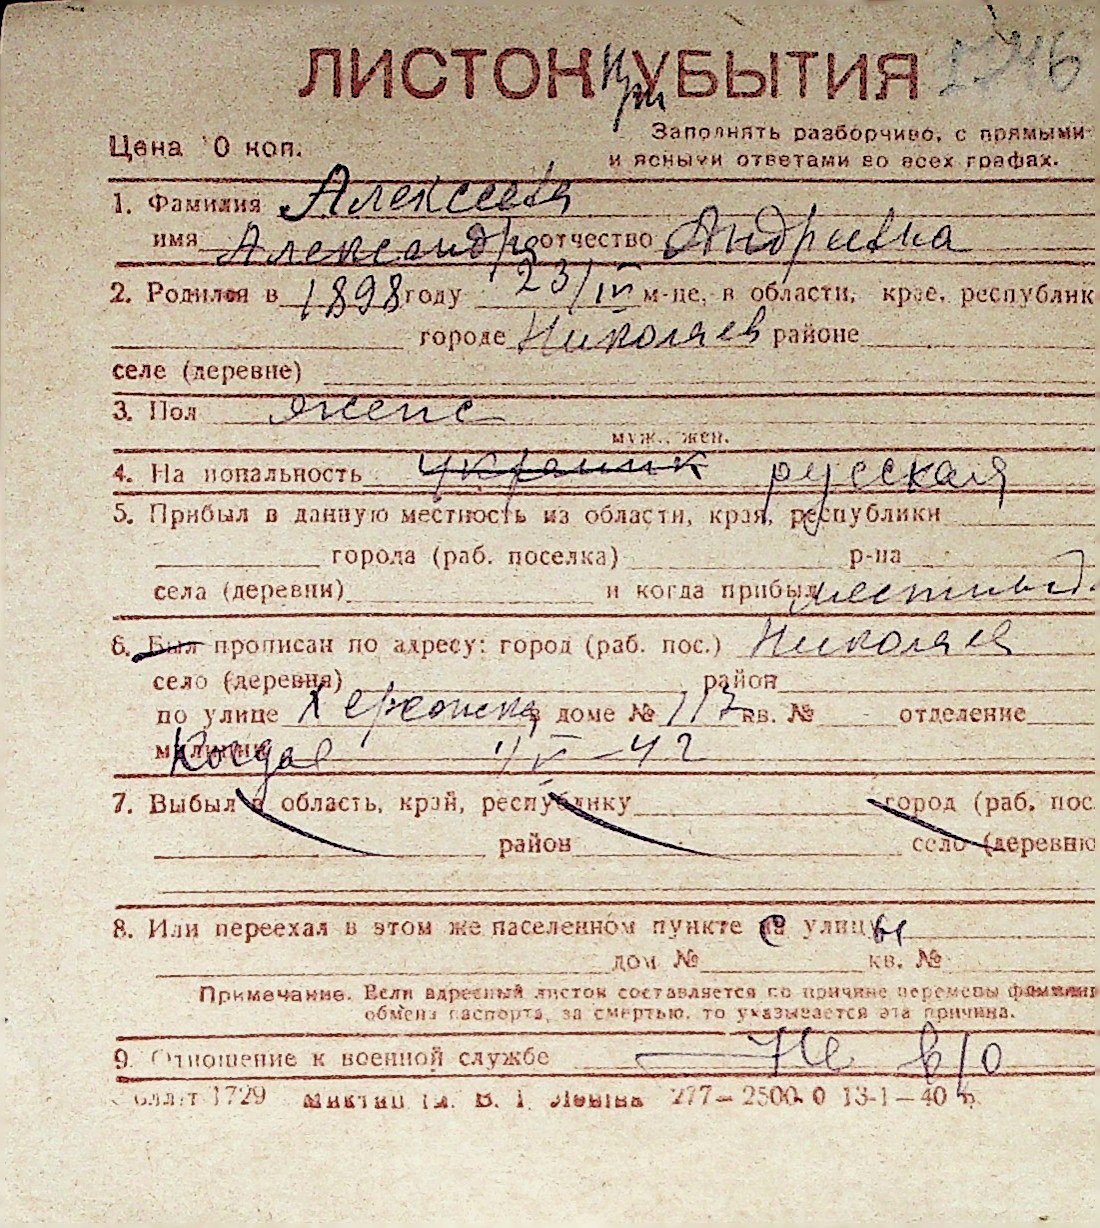 ЛИСТОК при УБЫТИЯ 1746
Цена 0 коп. Заполнять разборчиво, с прямыми
и ясными ответами во всех графах.
1. Фамилия Алексеева
имя Александра отчество Андриевна
2. Родился в 1898 году 23/IV м-це, в области, крае, республик
городе Николаев районе
селе (деревне)
3. Пол женс
муж., жен.
4. На иональность украинк русская
5. Прибыл в данную местность из области, края, республики
города (раб. поселка) р-на
села (деревни) и когда прибыл
6. Был прописан по адресу: город (раб. пос.) Николаев
село (деревня) район
по улице Херсонск в доме № 117 кв. № отделение
милиции Когда 4/V-42
7. Выбыл в область, край, республику город (раб. пос
район село (деревню
8. Или переехал в этом же населенном пункте с улицы
дом № кв. №
Примечание. Если адресный листок составляется по причине перемены фамилии
обмена паспорта, за смертью, то указывается эта причина.
9. Отношение к военной службе Не в/о
1729 277—2500. 0 13-1—40